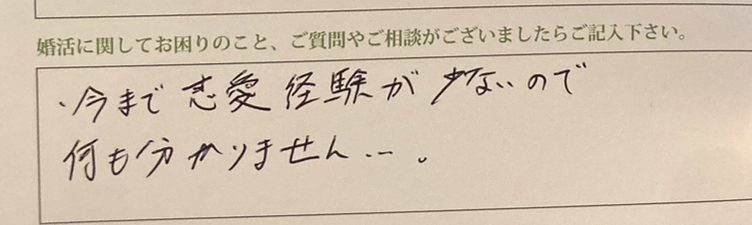 婚活に関してお困りのこと、ご質問やご相談がございましたらご記入下さい。
・今まで恋愛経験が少ないので
何も分かりません…。